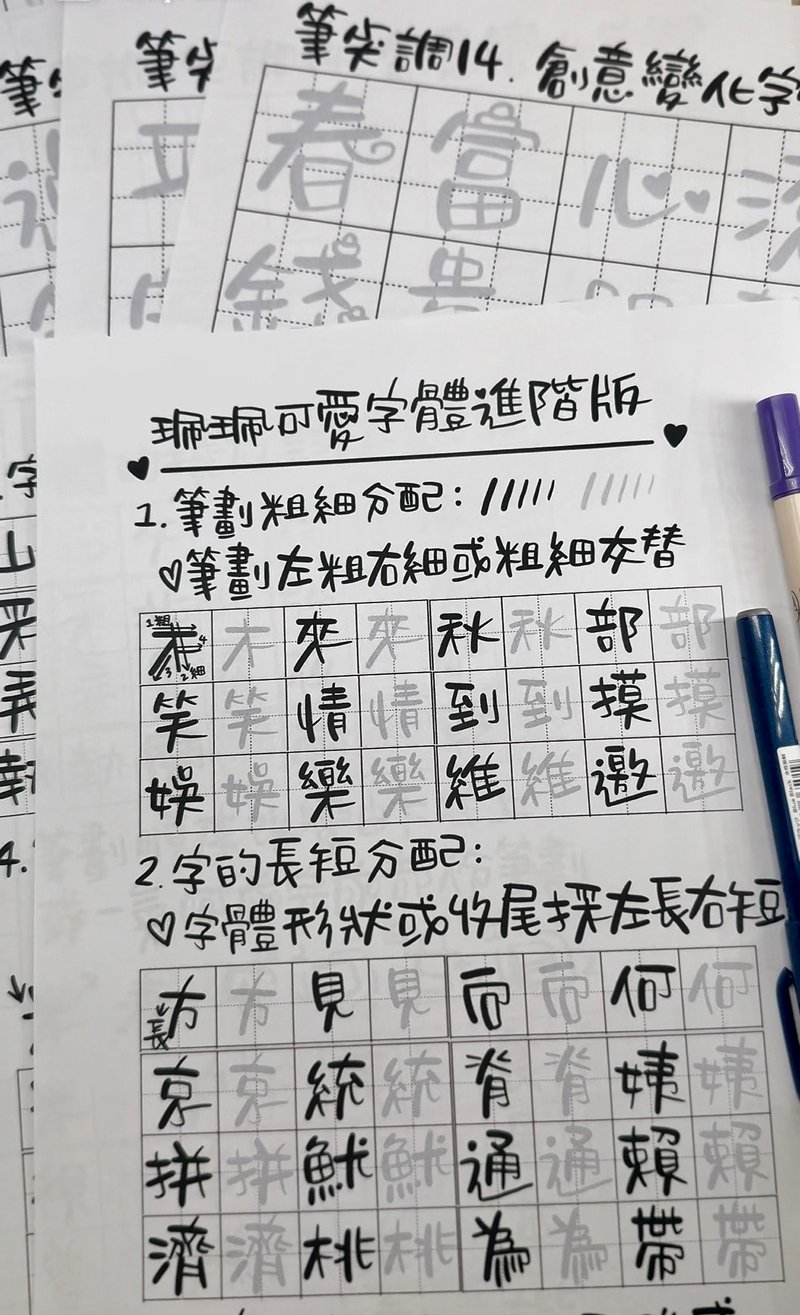 筆尖調14. 創意變化字
筆尖
筆
春 富 心
錢 貴
珮珮可愛字體進階版
1. 筆劃粗細分配:
筆劃左粗右細或粗細交替
1粗 2細 3 4
木 木 來 來 秋 秋 部 部
笑 笑 情 情 到 到 摸 摸
娛 娛 樂 樂 維 維 邀 邀
2. 字的長短分配:
字體形狀或收尾採左長右短
長
方 方 見 見 向 向 何 何
京 京 統 統 脊 脊 姨 姨
拼 拼 魷 魷 通 通 賴 賴
濟 濟 桃 桃 為 為 帶 帶
字
山
4.